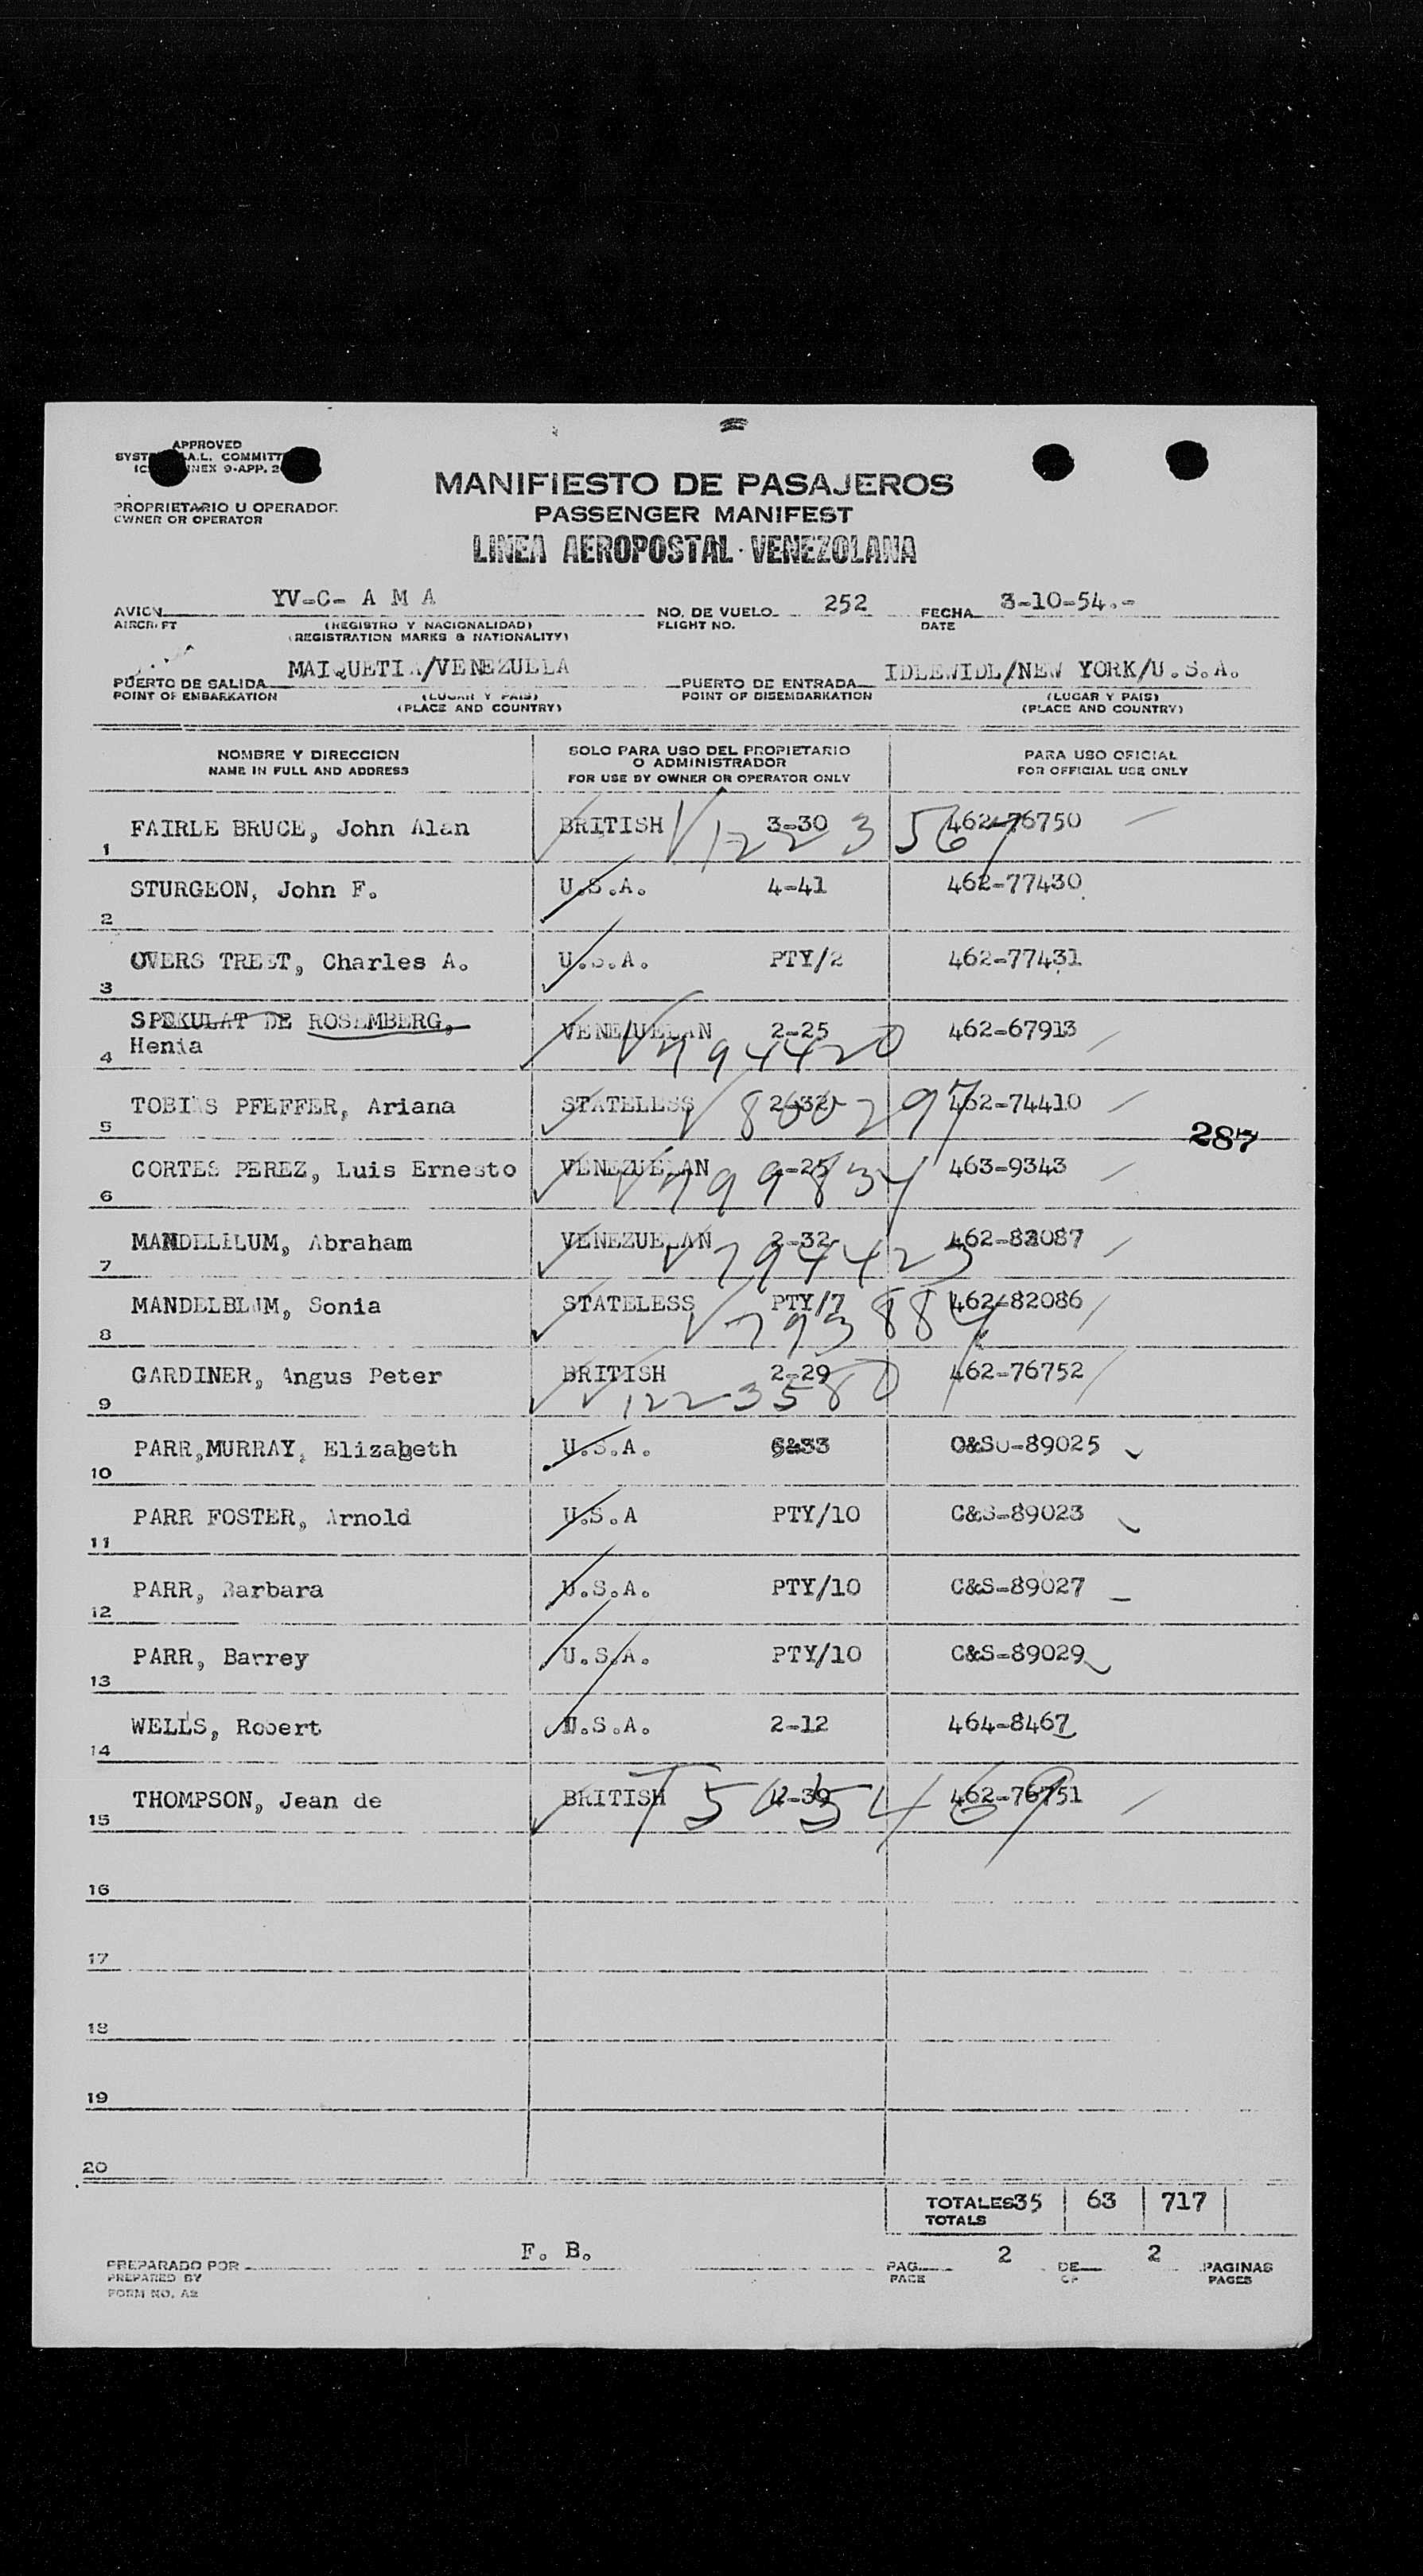 APPROVED
A.L. COMMITT
NEX 9-APP. 2
MANIFIESTO DE PASAJEROS
PROPRIETARIO U OPERADOR
OWNER OR OPERATOR
PASSENGER MANIFEST
LINEA AEROPOSTAL VENEZOLANA
AVION YV-C- A M A NO. DE VUELO 252 FECHA 3-10-54.-
AIRCRAFT (REGISTRO Y NACIONALIDAD) FLIGHT NO. DATE
(REGISTRATION MARKS & NATIONALITY)
PUERTO DE SALIDA MAIQUETIA/VENEZUELA PUERTO DE ENTRADA IDLEWIDL/NEW YORK/U.S.A.
POINT OF EMBARKATION (LUGAR Y PAIS) POINT OF DISEMBARKATION (LUGAR Y PAIS)
(PLACE AND COUNTRY) (PLACE AND COUNTRY)
NOMBRE Y DIRECCION SOLO PARA USO DEL PROPIETARIO PARA USO OFICIAL
O ADMINISTRADOR
NAME IN FULL AND ADDRESS FOR USE BY OWNER OR OPERATOR ONLY FOR OFFICIAL USE ONLY
1 FAIRLE BRUCE, John Alan BRITISH 3-30 462-76750
1223567
2 STURGEON, John F. U.S.A. 4-41 462-77430
3 OVERS TREET, Charles A. U.S.A. PTY/2 462-77431
SPEKULAT DE ROSEMBERG, VENEZUELAN 2-25 462-67913
4 Henia 794420
5 TOBIAS PFEFFER, Ariana STATELESS 2-32 462-74410
800297
287
6 CORTES PEREZ, Luis Ernesto VENEZUELAN 2-25 463-9343
799834
7 MANDELBLUM, Abraham VENEZUELAN 2-32 462-82087
794423
8 MANDELBLUM, Sonia STATELESS PTY/7 462-82086
793884
9 GARDINER, Angus Peter BRITISH 2-29 462-76752
1223580
10 PARR,MURRAY, Elizabeth U.S.A. 6-33 C&S-89025
11 PARR FOSTER, Arnold U.S.A PTY/10 C&S-89023
12 PARR, Barbara U.S.A. PTY/10 C&S-89027
13 PARR, Barrey U.S.A. PTY/10 C&S-89029
14 WELLS, Robert U.S.A. 2-12 464-8467
15 THOMPSON, Jean de BRITISH 2-39 462-76751
16
17
18
19
20
TOTALES 35 63 717
TOTALS
PREPARADO POR F. B. PAG. 2 DE 2 PAGINAS
PREPARED BY PAGE OF PAGES
FORM NO. A2